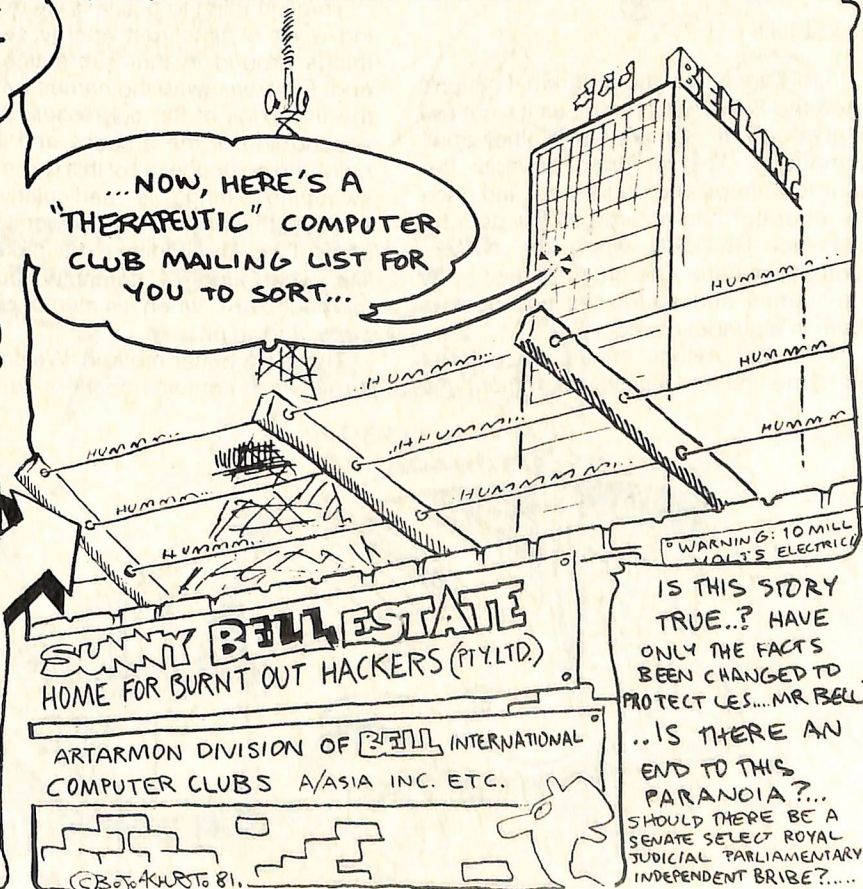 ...NOW, HERE'S A
"THERAPEUTIC" COMPUTER
CLUB MAILING LIST FOR
YOU TO SORT...
BELL INC
HUMMM...
HUMMM...
HUMMM
HUMMM...
HUMMM...
HUMMMM...
HUMMM..
HUMMM...
HUMMM...
WARNING: 10 MILL
VOLTS ELECTRIC
SUNNY BELL ESTATE
HOME FOR BURNT OUT HACKERS (PTY.LTD.)
ARTARMON DIVISION OF BELL INTERNATIONAL
COMPUTER CLUBS A/ASIA INC. ETC.
IS THIS STORY
TRUE..? HAVE
ONLY THE FACTS
BEEN CHANGED TO
PROTECT LES....MR BELL.
..IS THERE AN
END TO THIS
PARANOIA?...
SHOULD THERE BE A
SENATE SELECT ROYAL
JUDICIAL PARLIAMENTARY
INDEPENDENT BRIBE?.....
81.